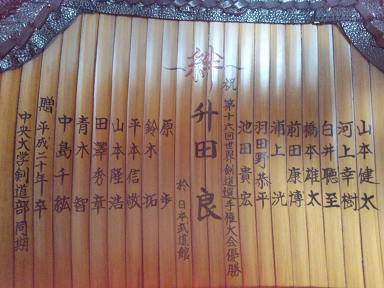 絆
山本健太
河上幸樹
白井聰至
橋本雄太
前田康博
浦上洸
羽田野恭平
池田貴宏
祝 第十六回世界剣道選手権大会優勝
升田良
於 日本武道館
原歩
鈴木拓
平本信敬
山本隆浩
田澤秀章
青木智
中島千鉱
贈 平成二十年卒
中央大学剣道部同期